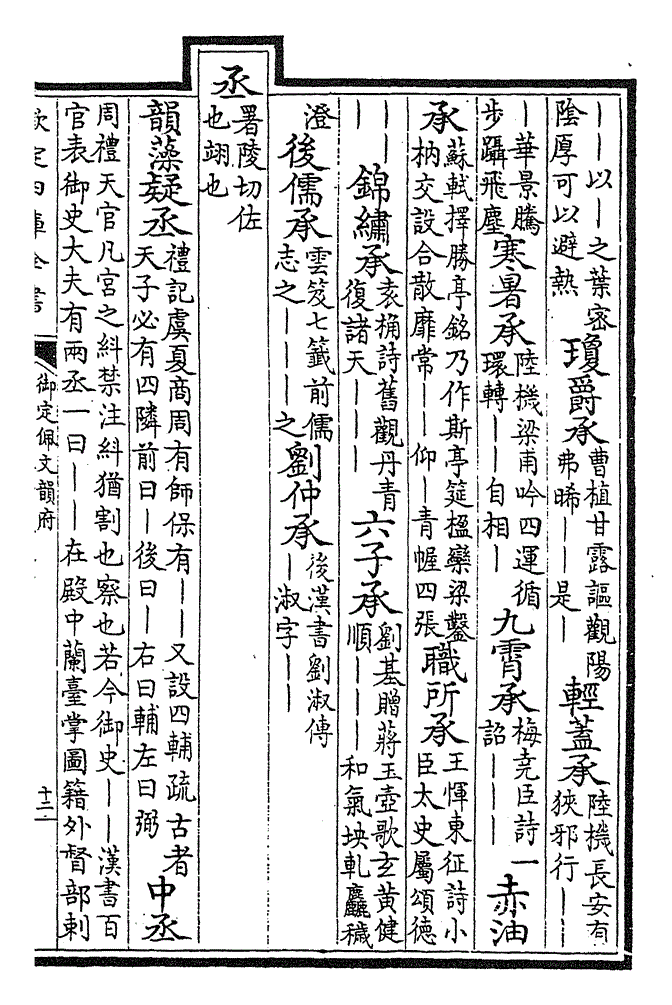 ——以—之葉密
陰厚可以避熱
瓊爵承
曹植甘露謳觀陽
弗晞——是—
輕蓋承
陸機長安有
狹邪行——
—華景騰
步躡飛塵
寒暑承
陸機梁甫吟四運循
環轉——自相—
九霄承
梅堯臣詩一
詔———
赤油
承
蘇軾擇勝亭銘乃作斯亭筵楹欒梁鑿
枘交設合散靡常——仰—青幄四張
職所承
王惲東征詩小
臣太史屬頌德
——
—
錦繡承
袁桷詩舊觀丹青
復諸天———
六子承
劉基贈蔣玉壺歌玄黄健
順———和氣坱軋麤穢
澄
後儒承
雲笈七籤前儒
志之————之
劉仲承
後漢書劉淑傳
—淑字———
丞
署陵切佐
也翊也
韻藻疑丞
禮記虞夏商周有師保有——又設四輔疏古者
天子必有四隣前曰—後曰—右曰輔左曰弼
中丞
周禮天官凡宮之糾禁注糾猶割也察也若今御史——漢書百
官表御史大夫有兩丞一曰——在殿中蘭臺掌圖籍外督部刺
欽定四庫全書
御定佩文韻府
十三